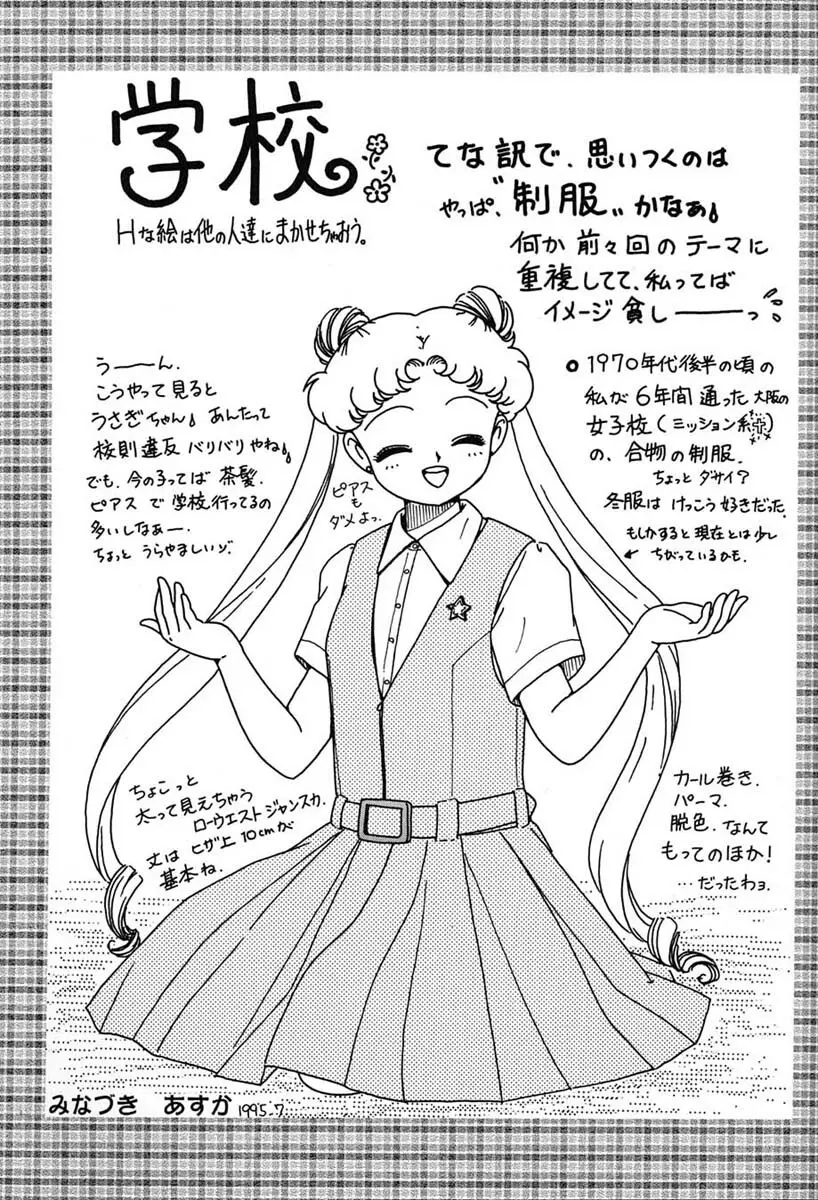 学校
Hな絵は他の人達にまかせちゃおう。
てな訳で、思いつくのは
やっぱ、“制服„かなぁ
何か前々回のテーマに
重複してて、私ってば
イメージ貧しーーっ
1970年代後半の頃の
私が6年間通った大阪の
女子校(ミッション系)
の、合物の制服。
ちょっとダサイ?
冬服はけっこう好きだった。
もしかすると現在とは少し
ちがっているかも。
うーーん。
こうやって見ると
うさぎちゃん あんたって
校則違反バリバリやね
でも、今の子ってば茶髪、
ピアスで学校行ってるの
多いしなぁー
ちょっとうらやましいゾ。
ピアス
も
ダメよっ
ちょこっと
太って見えちゃう
ローウエストジャンスカ。
丈はヒザ上10cmが
基本ね。
カール巻き、
パーマ、
脱色、なんて
もってのほか!
…だったわョ。
みなづき あすか 1995.7